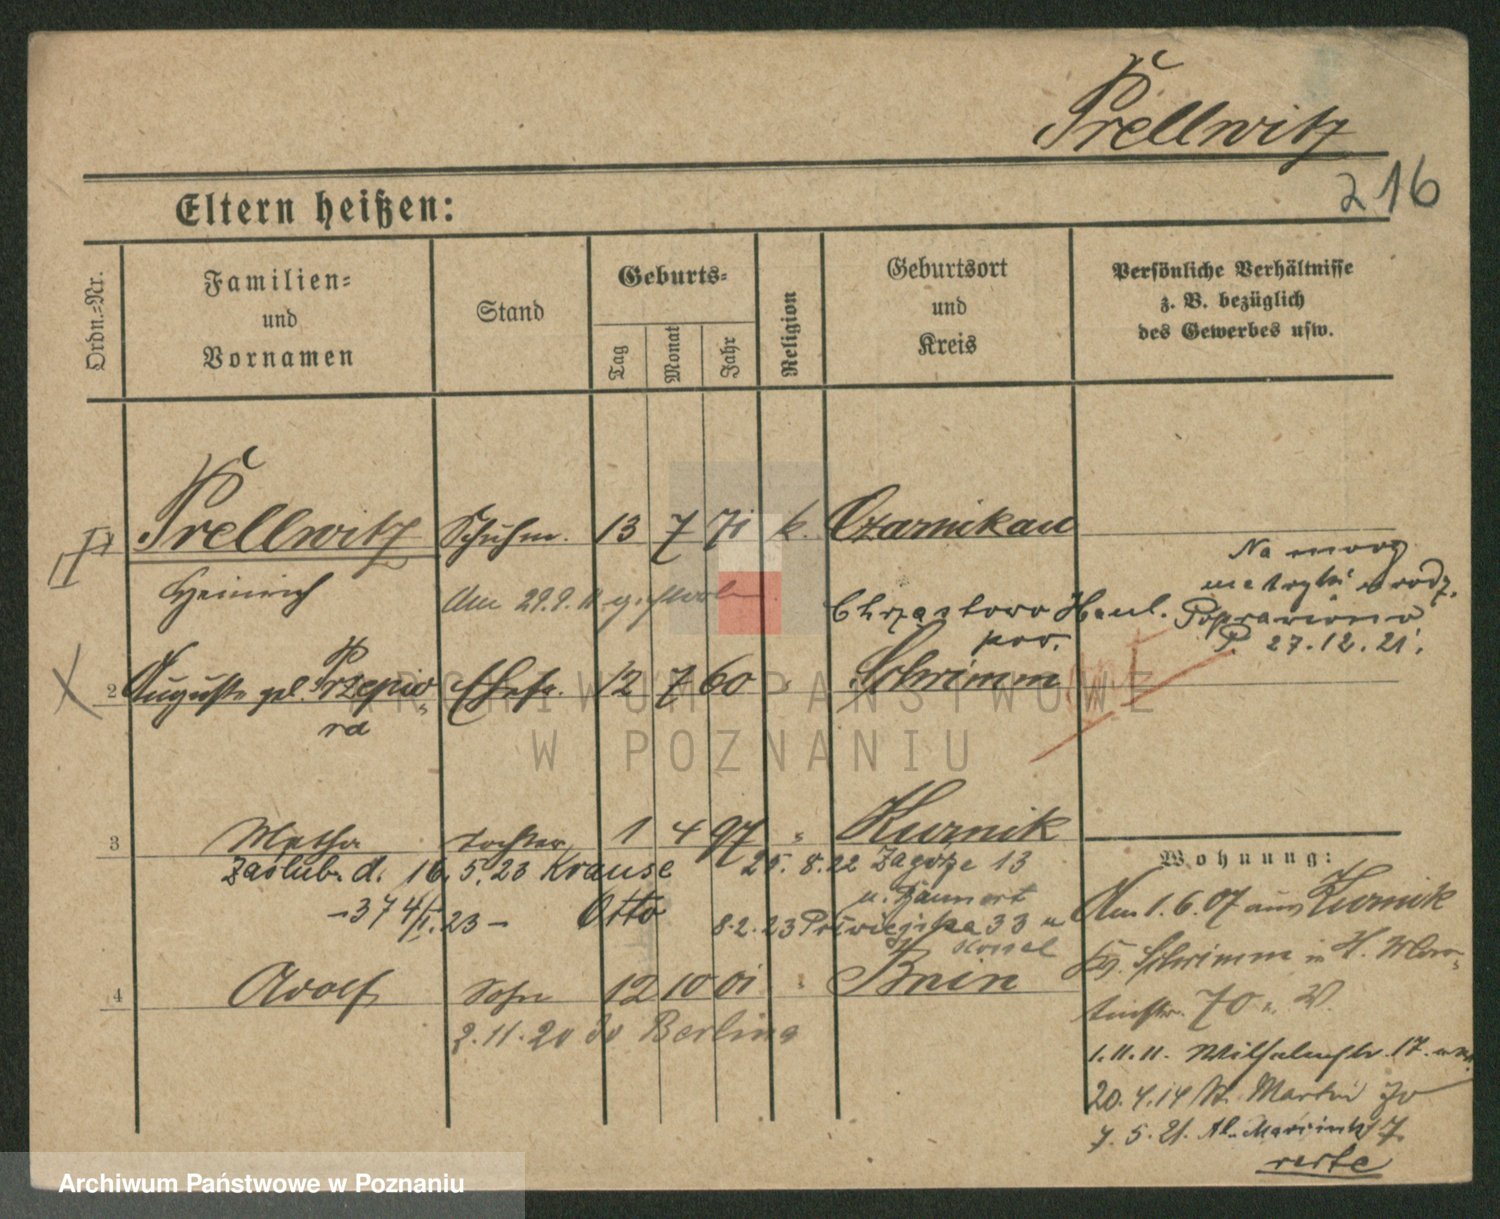 Prellwitz
216
Eltern heißen:
Ordn.-Nr.
Familien-
und
Vornamen
Stand
Geburts-
Tag
Monat
Jahr
Religion
Geburtsort
und
Kreis
Persönliche Verhältnisse
z. B. bezüglich
des Gewerbes usw.
Prellwitz Schuhm. 13 7 71 k. Czarnikau
Heinrich
Am 29.9.11 gestorben
Na mocy
metryki urodz.
Poprawiono
P. 27.12.21.
Chrząstowo
pow.
2 Auguste geb. Przepió-
ra
Ehefr. 12 7 60 " Schrimm
3 Martha Tochter 1 4 97 " Kurnik
Zaślub. d. 16.5.23 Krause
Otto
- 374/II.23 -
25.8.22 Zagórze 13
u.
8.2.23 33 u
4 Adolf Sohn 12 10 01 " Bnin
2.11.20 do Berlina
Wohnung:
Am 1.6.07 aus Kurnik
Kr. Schrimm in
70
1.11.11. Wilhelmstr. 17.
20.4.14 St. Martin
7.5.21. Al. Marcink 17.
ARCHIWUM PAŃSTWOWE
W POZNANIU
Archiwum Państwowe w Poznaniu